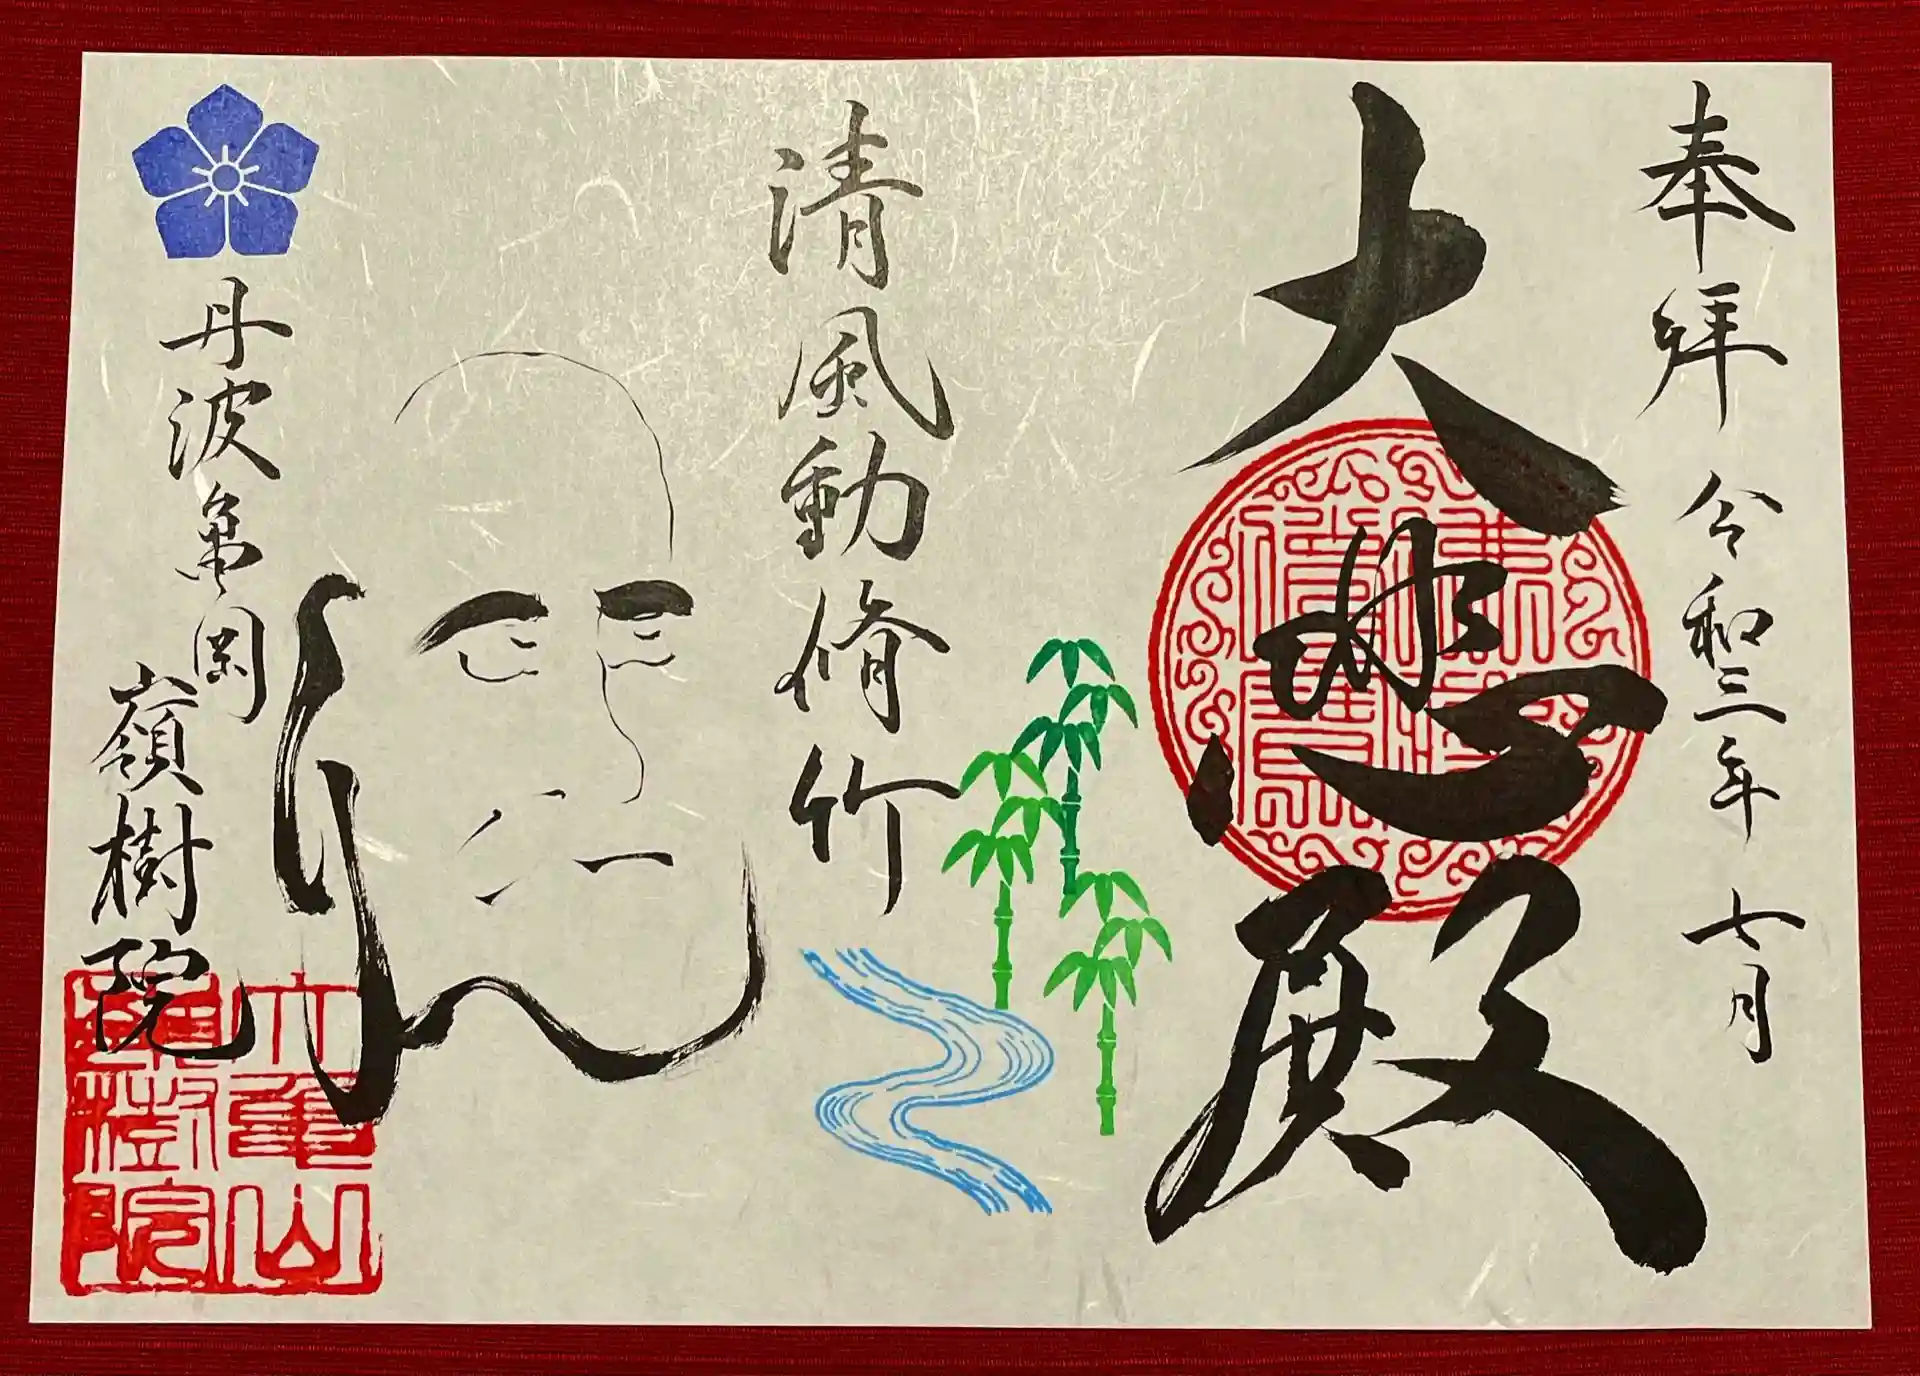 奉拝 令和三年 七月
大悲殿
清風動脩竹
丹波亀岡
嶺樹院